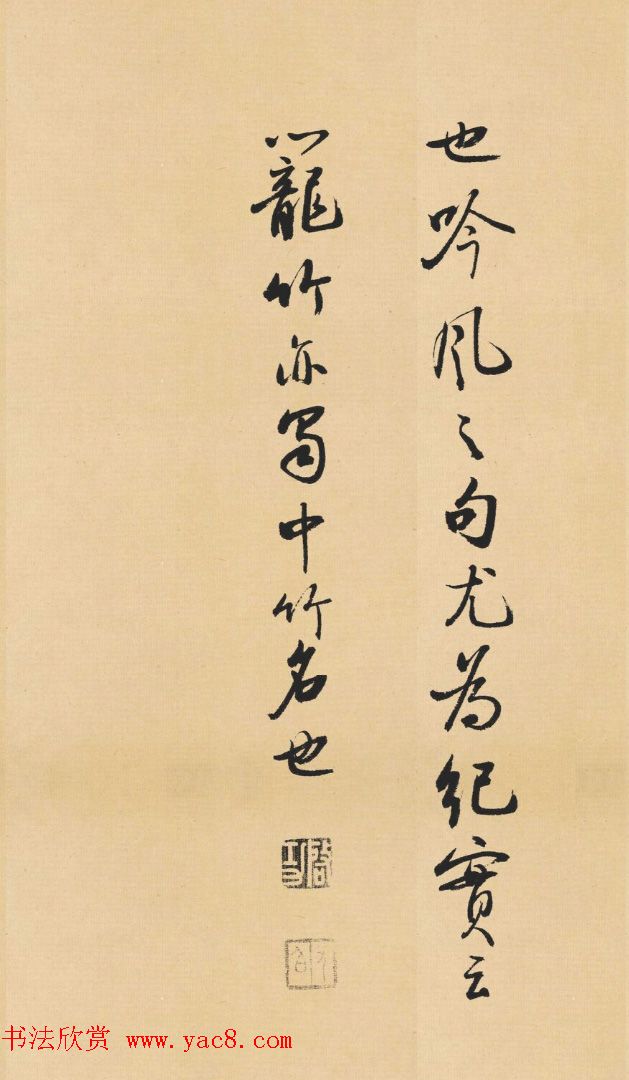 也吟风之句尤为纪實云
籠竹亦蜀中竹名也
啓功
书法欣赏 www.yac8.com